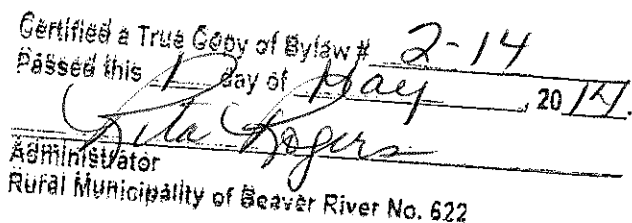 Certified a True Copy of Bylaw # 2-14
Passed this 1 day of May, 2014.
Rita Rogers
Administrator
Rural Municipality of Beaver River No. 622